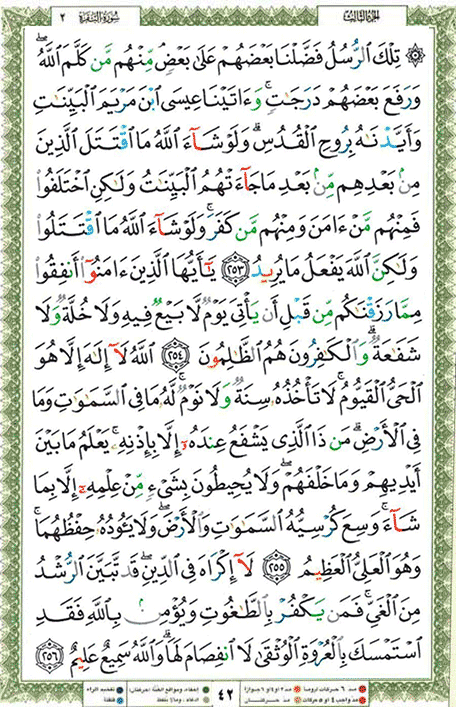 الجزء الثالث سورة البقرة ٢
۞ تِلْكَ ٱلرُّسُلُ فَضَّلْنَا بَعْضَهُمْ عَلَىٰ بَعْضٍ ۘ مِّنْهُم مَّن كَلَّمَ ٱللَّهُ ۖ
وَرَفَعَ بَعْضَهُمْ دَرَجَٰتٍ ۚ وَءَاتَيْنَا عِيسَى ٱبْنَ مَرْيَمَ ٱلْبَيِّنَٰتِ
وَأَيَّدْنَٰهُ بِرُوحِ ٱلْقُدُسِ ۗ وَلَوْ شَآءَ ٱللَّهُ مَا ٱقْتَتَلَ ٱلَّذِينَ
مِنۢ بَعْدِهِم مِّنۢ بَعْدِ مَا جَآءَتْهُمُ ٱلْبَيِّنَٰتُ وَلَٰكِنِ ٱخْتَلَفُوا۟
فَمِنْهُم مَّنْ ءَامَنَ وَمِنْهُم مَّن كَفَرَ ۚ وَلَوْ شَآءَ ٱللَّهُ مَا ٱقْتَتَلُوا۟
وَلَٰكِنَّ ٱللَّهَ يَفْعَلُ مَا يُرِيدُ ٢٥٣ يَٰٓأَيُّهَا ٱلَّذِينَ ءَامَنُوٓا۟ أَنفِقُوا۟
مِمَّا رَزَقْنَٰكُم مِّن قَبْلِ أَن يَأْتِىَ يَوْمٌ لَّا بَيْعٌ فِيهِ وَلَا خُلَّةٌ وَلَا
شَفَٰعَةٌ ۗ وَٱلْكَٰفِرُونَ هُمُ ٱلظَّٰلِمُونَ ٢٥٤ ٱللَّهُ لَآ إِلَٰهَ إِلَّا هُوَ
ٱلْحَىُّ ٱلْقَيُّومُ ۚ لَا تَأْخُذُهُۥ سِنَةٌ وَلَا نَوْمٌ ۚ لَّهُۥ مَا فِى ٱلسَّمَٰوَٰتِ وَمَا
فِى ٱلْأَرْضِ ۗ مَن ذَا ٱلَّذِى يَشْفَعُ عِندَهُۥٓ إِلَّا بِإِذْنِهِۦ ۚ يَعْلَمُ مَا بَيْنَ
أَيْدِيهِمْ وَمَا خَلْفَهُمْ ۖ وَلَا يُحِيطُونَ بِشَىْءٍ مِّنْ عِلْمِهِۦٓ إِلَّا بِمَا
شَآءَ ۚ وَسِعَ كُرْسِيُّهُ ٱلسَّمَٰوَٰتِ وَٱلْأَرْضَ ۖ وَلَا يَـُٔودُهُۥ حِفْظُهُمَا ۚ
وَهُوَ ٱلْعَلِىُّ ٱلْعَظِيمُ ٢٥٥ لَآ إِكْرَاهَ فِى ٱلدِّينِ ۖ قَد تَّبَيَّنَ ٱلرُّشْدُ
مِنَ ٱلْغَىِّ ۚ فَمَن يَكْفُرْ بِٱلطَّٰغُوتِ وَيُؤْمِنۢ بِٱللَّهِ فَقَدِ
ٱسْتَمْسَكَ بِٱلْعُرْوَةِ ٱلْوُثْقَىٰ لَا ٱنفِصَامَ لَهَا ۗ وَٱللَّهُ سَمِيعٌ عَلِيمٌ ٢٥٦
٤٢
مد ٦ حركات لزوما
مد ٢ او ٤ او ٦ جوازا
مد حركتان
تفخيم الراء
قلقلة